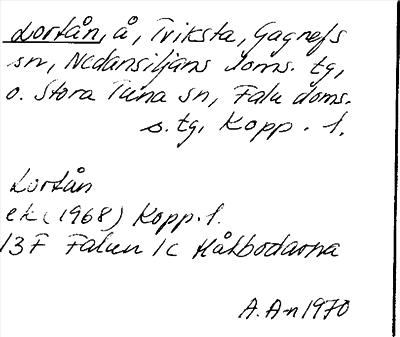 Lortån, å, Triksta, Gagnefs
sn, Nedansiljans doms. tg,
o. Stora Tuna sn, Falu doms.
s. tg, Kopp. l.
Lortån
ek (1968) Kopp. l.
13F Falun 1c Håkbodarna
A. An 1970